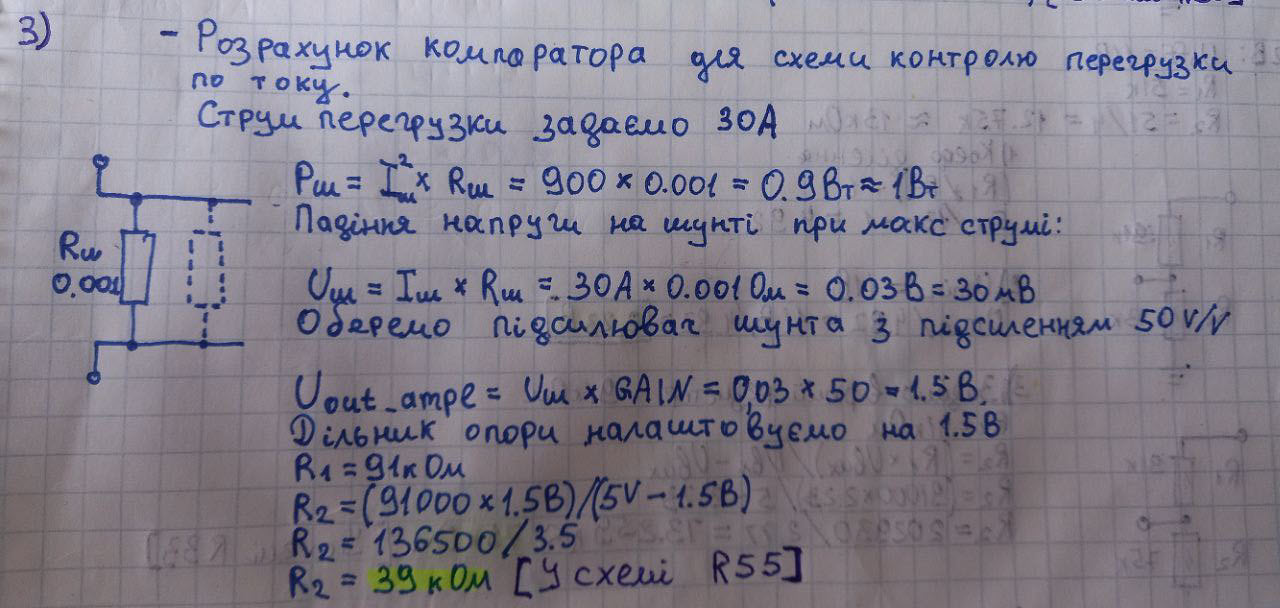 3)
- Розрахунок компаратора для схеми контролю перегрузки
по току.
Струм перегрузки задаємо 30А
Pш = Iш² × Rш = 900 × 0.001 = 0.9Вт ≈ 1Вт
Падіння напруги на шунті при макс струмі:
Rш
0.001
Uш = Iш × Rш = 30А × 0.001Ом = 0.03В = 30мВ
Оберемо підсилювач шунта з підсиленням 50 V/V
Uout_ampl = Uш × GAIN = 0,03 × 50 = 1.5В.
Дільник опори налаштовуємо на 1.5В
R1 = 91кОм
R2 = (91000 × 1.5В)/(5V - 1.5В)
R2 = 136500/3.5
R2 = 39кОм [У схемі R55]